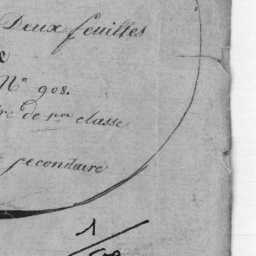 Deux feuilles
N° 908.
de 1re classe
secondaire
1